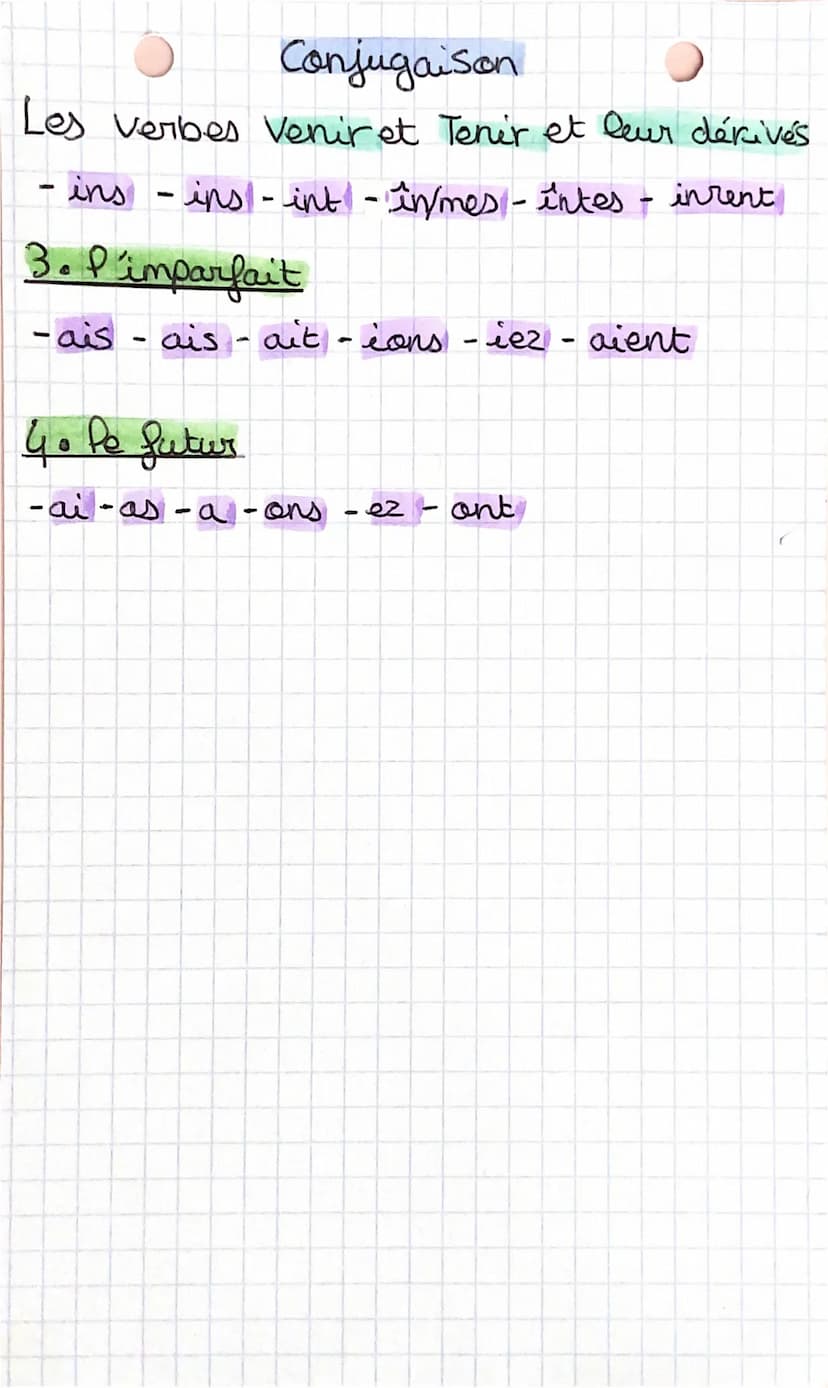 Conjugaison
Les verbes Venir et Tenir et leur dérivés
- ins - ins - int - în/mes - întes - inrent
3. l'imparfait
- ais - ais - ait - ions - iez - aient
4. le futur
- ai - as - a - ons - ez - ont